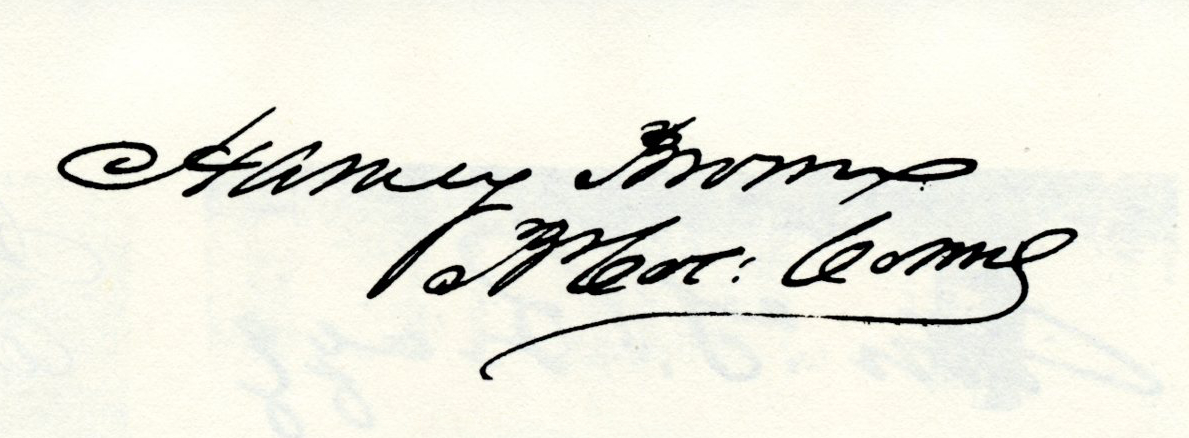 Harvey Brown
Bt Col: Comd